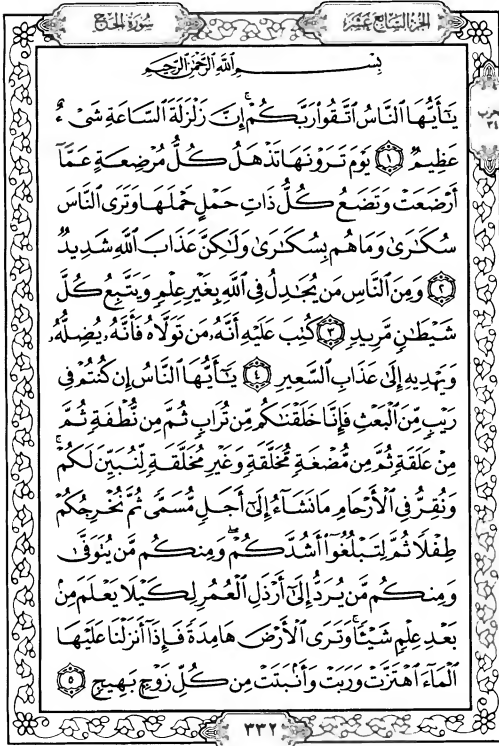 سُورَةُ الحَجّ
الجُزءُ السَّابِعُ عَشَرَ
بِسْمِ ٱللَّهِ ٱلرَّحْمَٰنِ ٱلرَّحِيمِ
يَٰٓأَيُّهَا ٱلنَّاسُ ٱتَّقُوا۟ رَبَّكُمْ ۚ إِنَّ زَلْزَلَةَ ٱلسَّاعَةِ شَىْءٌ
عَظِيمٌ ١ يَوْمَ تَرَوْنَهَا تَذْهَلُ كُلُّ مُرْضِعَةٍ عَمَّآ
أَرْضَعَتْ وَتَضَعُ كُلُّ ذَاتِ حَمْلٍ حَمْلَهَا وَتَرَى ٱلنَّاسَ
سُكَٰرَىٰ وَمَا هُم بِسُكَٰرَىٰ وَلَٰكِنَّ عَذَابَ ٱللَّهِ شَدِيدٌ
٢ وَمِنَ ٱلنَّاسِ مَن يُجَٰدِلُ فِى ٱللَّهِ بِغَيْرِ عِلْمٍ وَيَتَّبِعُ كُلَّ
شَيْطَٰنٍ مَّرِيدٍ ٣ كُتِبَ عَلَيْهِ أَنَّهُۥ مَن تَوَلَّاهُ فَأَنَّهُۥ يُضِلُّهُۥ
وَيَهْدِيهِ إِلَىٰ عَذَابِ ٱلسَّعِيرِ ٤ يَٰٓأَيُّهَا ٱلنَّاسُ إِن كُنتُمْ فِى
رَيْبٍ مِّنَ ٱلْبَعْثِ فَإِنَّا خَلَقْنَٰكُم مِّن تُرَابٍ ثُمَّ مِن نُّطْفَةٍ ثُمَّ
مِنْ عَلَقَةٍ ثُمَّ مِن مُّضْغَةٍ مُّخَلَّقَةٍ وَغَيْرِ مُخَلَّقَةٍ لِّنُبَيِّنَ لَكُمْ ۚ
وَنُقِرُّ فِى ٱلْأَرْحَامِ مَا نَشَآءُ إِلَىٰٓ أَجَلٍ مُّسَمًّى ثُمَّ نُخْرِجُكُمْ
طِفْلًا ثُمَّ لِتَبْلُغُوٓا۟ أَشُدَّكُمْ ۖ وَمِنكُم مَّن يُتَوَفَّىٰ
وَمِنكُم مَّن يُرَدُّ إِلَىٰٓ أَرْذَلِ ٱلْعُمُرِ لِكَيْلَا يَعْلَمَ مِنۢ
بَعْدِ عِلْمٍ شَيْـًٔا ۚ وَتَرَى ٱلْأَرْضَ هَامِدَةً فَإِذَآ أَنزَلْنَا عَلَيْهَا
ٱلْمَآءَ ٱهْتَزَّتْ وَرَبَتْ وَأَنۢبَتَتْ مِن كُلِّ زَوْجٍۭ بَهِيجٍ ٥
٣٣٢